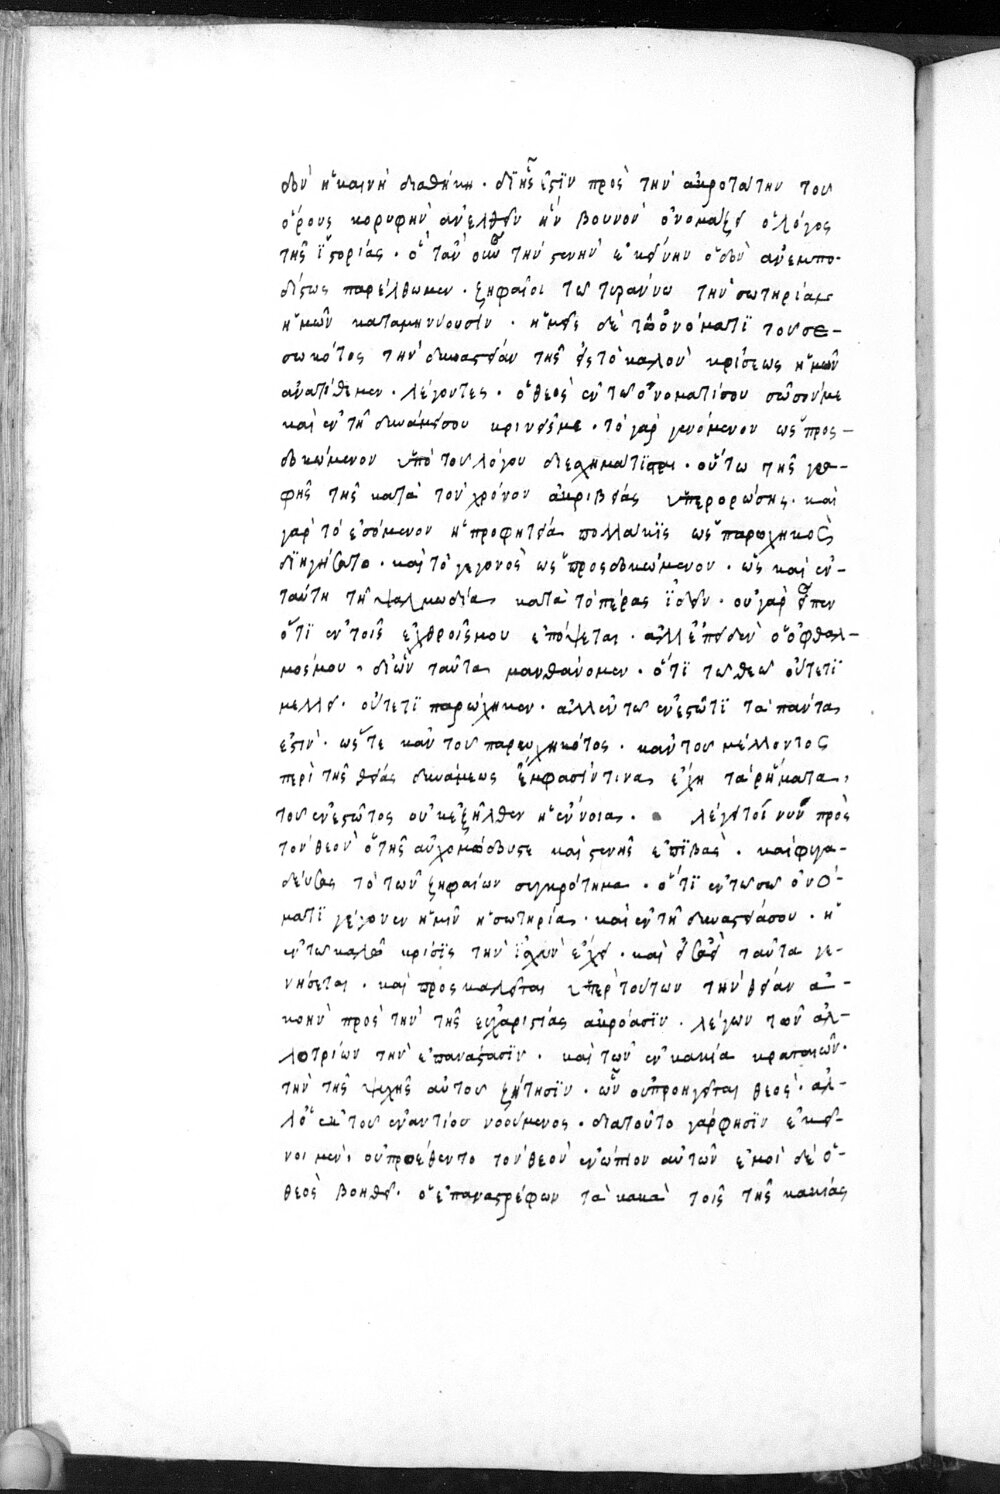 δὸν ἡ καινὴ διαθήκη · δι ἧς ἐστϊν πρὸς τὴν ἀκροτάτην του
ὄρους κορυφὴν ἀνελθεῖν ἣν βουνὸν ὀνομάζει ὁ λόγος
τῆς ἱστορίας · ὅταν οὖν τὴν στενὴν ἐκείνην ὁδὸν ἀνεμπο-
δίστως παρέλθωμεν · ζηφαῖοι τω τυράννω τὴν σωτηρίαν
ἡμῶν καταμηνύουσϊν · ἡμεῖς δὲ τῶ ὀνόματϊ του σε-
σωκότος τὴν δυναστείαν τῆς εἰς τὸ καλὸν κρίσεως ἡμῶν
ἀνατίθεμεν · λέγοντες · ὁ θεὸς ἐν τω ὀνοματί σου σῶσόν με
καὶ ἐν τῆ δυνάμει σου κρινεῖς με · τὸ γὰρ γενόμενον ὡς προς-
δοκώμενον ὑπὸ του λόγου διεσχημάτϊσται · οὕτω της γρα-
φῆς τῆς κατὰ τὸν χρόνον ἀκριβείας ὑπερορώσης · καὶ
γὰρ τὸ ἐσόμενον ἡ προφητεία πολλάκϊς ὡς παρωχηκὸς
δϊηγήσατο · καὶ τὸ γεγονὸς ὡς προςδοκώμενον · ὡς καὶ ἐν-
ταύτη τῆ ψαλμωδία κατὰ τὸ πέρας ἰδεῖν · ου γὰρ εἶπεν
ὅτϊ ἐν τοῖς ἐχθροῖς μου ἐπόψεται · ἀλλ ἐπεῖδεν ὁ ὀφθαλ-
μος μου · δι ὧν ταῦτα μανθάνομεν · ὅτϊ τω θεω οὔτε τϊ
μέλλει · οὔτε τϊ παρώχηκεν · ἀλλ ἐν τω ἐνεστῶτϊ τὰ πάντα
ἐστϊν · ὥστε κἂν του παρωχηκότος · κἂν του μέλλοντος
περὶ τῆς θείας δυνάμεως ἔμφασίν τινα ἔχη τὰ ρήματα ·
του ἐνεστῶτος οὐκ ἐξῆλθεν ἡ ἔννοια · λέγει τοίνυν πρὸς
τὸν θεὸν ὁ τῆς αὐχμώδους τε καὶ στενῆς ἐπϊβὰς · καὶ φυγα-
δεύσας τὸ τῶν ζηφαίων συγκρότημα · ὅτϊ ἐν τω σω ὀνό-
ματϊ γέγονεν ἡμῖν ἡ σωτηρία · καὶ ἐν τῆ δυναστεία σου · ἡ
ἐν τω καλῶ κρίσϊς τὴν ἰσχὺν ἔχει · καὶ εἰσαεὶ ταῦτα γε-
νήσεται · καὶ προςκαλεῖται ὑπὲρ τούτων τὴν θείαν ἀ-
κοὴν πρὸς τὴν τῆς εὐχαριστίας ἀκρόασϊν · λέγων τῶν ἀλ-
λοτρίων τὴν ἐπανάστασϊν · καὶ τῶν ἐν κακία κραταιῶν ·
τὴν τῆς ψυχῆς αὐτου ζήτησϊν · ὧν οὐ προηγεῖται θεὸς · ἀλ-
λ ὁ ἐκ του ἐναντίου νοούμενος · διατοῦτο γάρ φησϊν ἐκεῖ-
νοι μὲν · οὐ προέθεντο τὸν θεὸν ἐνώπιον αὐτῶν ἐμοὶ δὲ ὁ
θεὸς βοηθεῖ · ὁ ἐπαναστρέφων τὰ κακὰ τοῖς τῆς κακίας